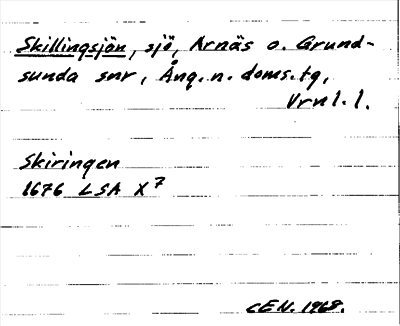 Skillingsjön, sjö, Arnäs o. Grund-
sunda snr, Ång. n. doms.tg,
Vrnl. l.
Skiringen
1676 LSA X7
CEN. 1968.